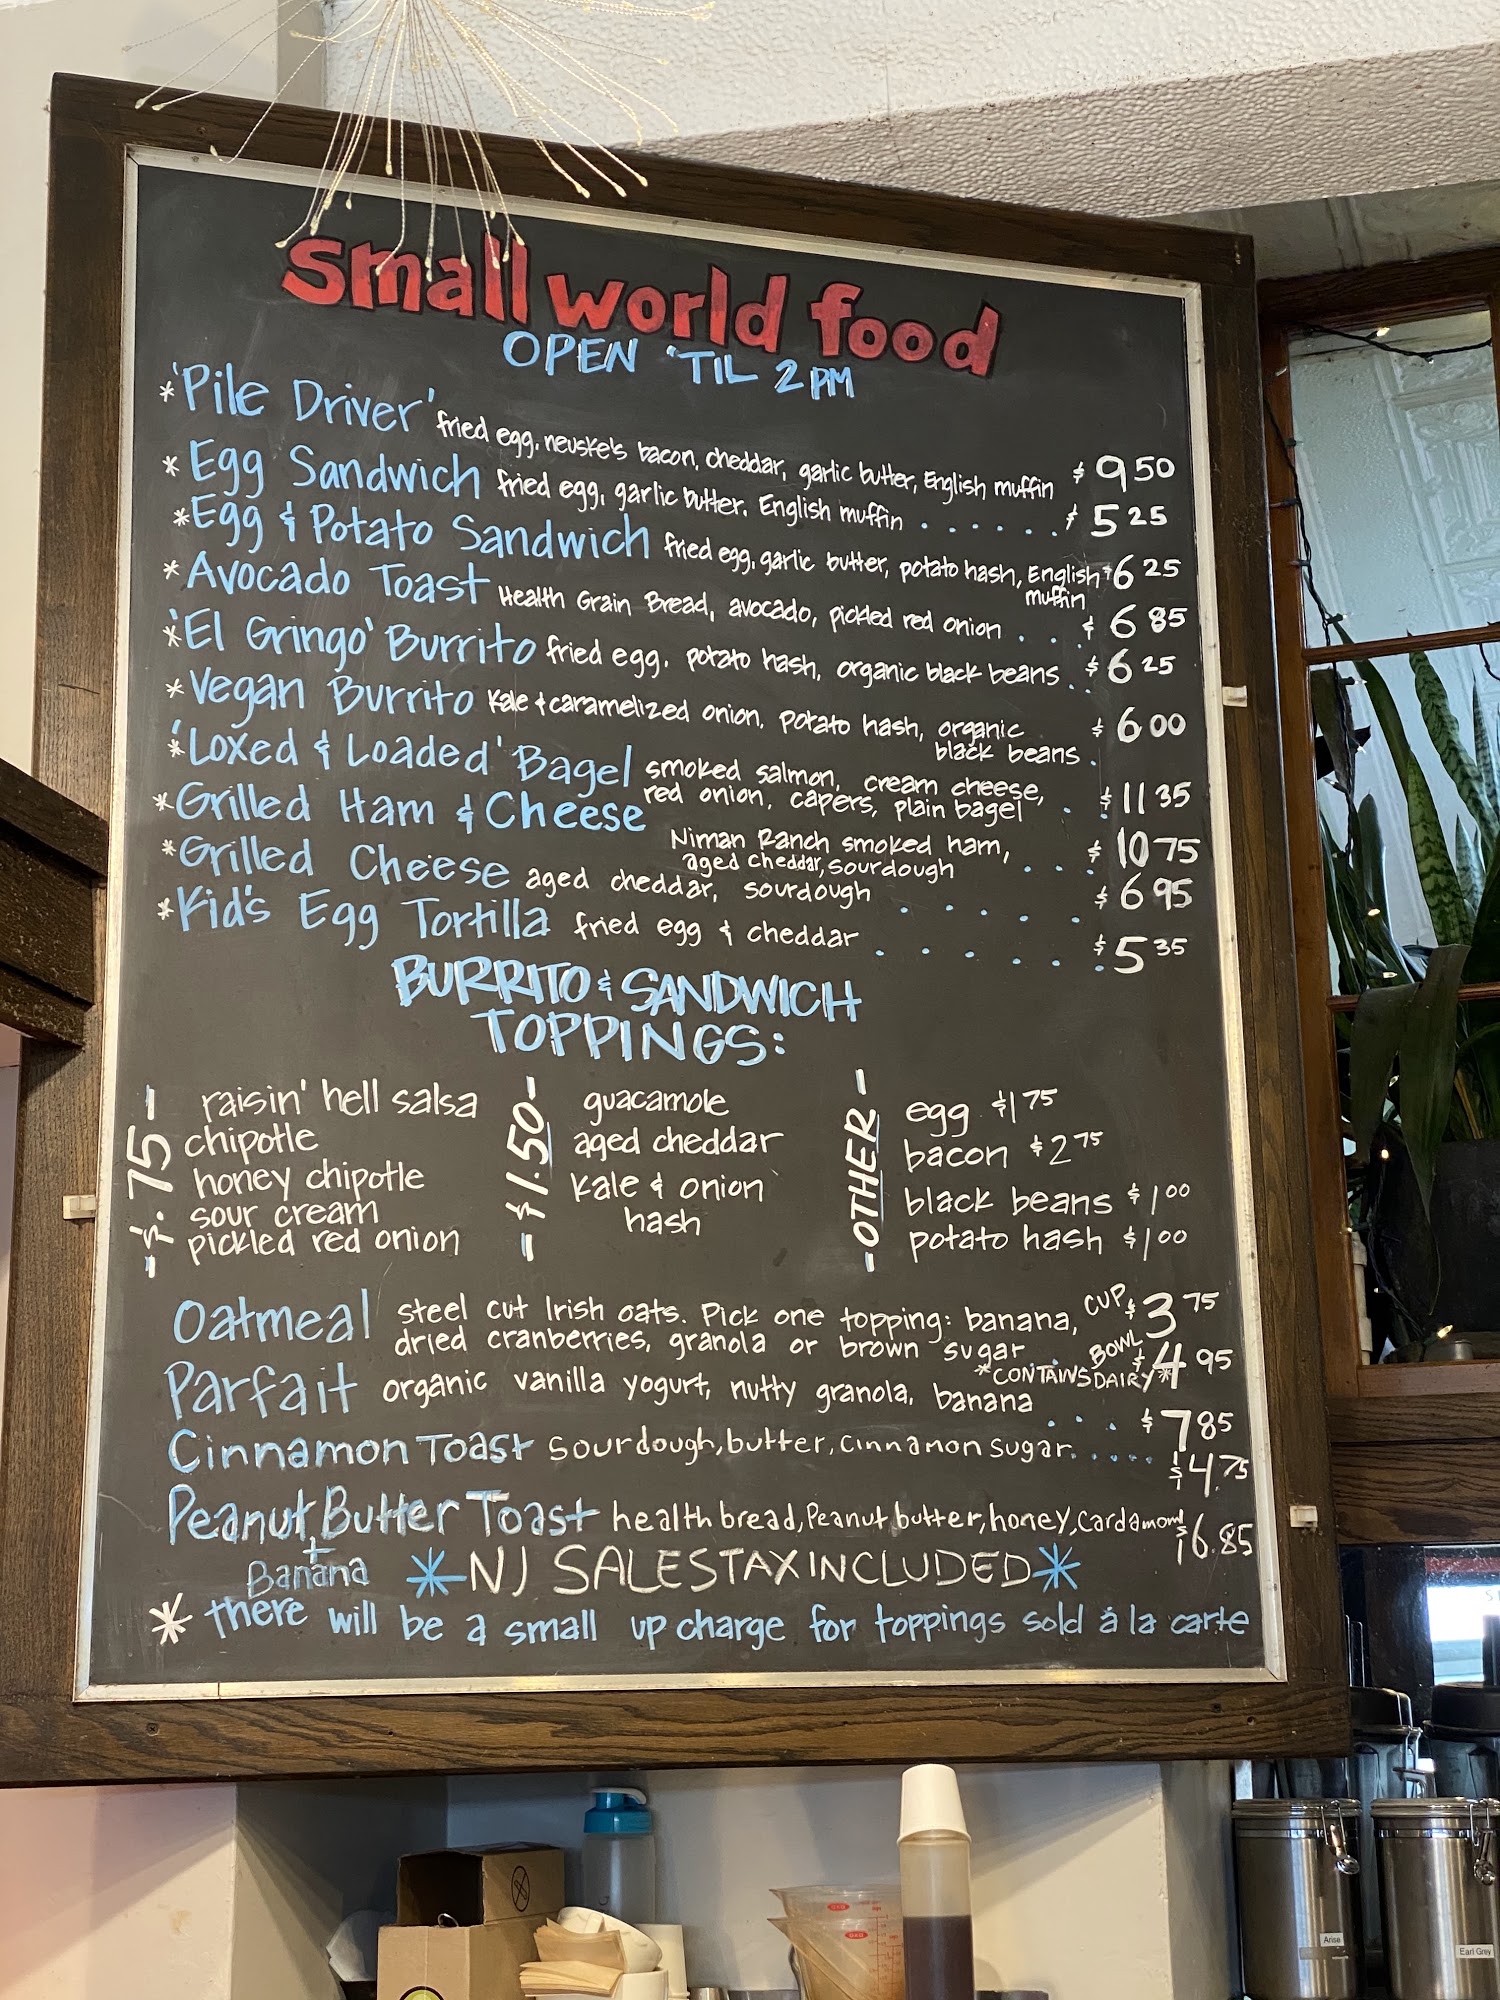 small world food
OPEN 'TIL 2 PM
*'Pile Driver' fried egg, neuske's bacon, cheddar, garlic butter, English muffin $9 50
*Egg Sandwich fried egg, garlic butter. English muffin . . . . . . $5 25
*Egg & Potato Sandwich fried egg, garlic butter, potato hash, English $6 25
muffin
*Avocado Toast Health Grain Bread, avocado, pickled red onion . . $6 85
*'El Gringo' Burrito fried egg, potato hash, organic black beans . . $6 25
*Vegan Burrito Kale & caramelized onion, potato hash, organic $6 00
black beans .
*'Loxed & Loaded' Bagel smoked salmon, cream cheese,
red onion, capers, plain bagel . $11 35
*Grilled Ham & Cheese Niman Ranch smoked ham,
aged cheddar, sourdough . . . $10 75
*Grilled Cheese aged cheddar, sourdough . . . . . $6 95
*Kid's Egg Tortilla fried egg & cheddar . . . . . . $5 35
BURRITO & SANDWICH
TOPPINGS:
-$.75-
raisin' hell salsa
chipotle
honey chipotle
sour cream
pickled red onion
-$1.50-
guacamole
aged cheddar
kale & onion
hash
-OTHER-
egg $1 75
bacon $2 75
black beans $1 00
potato hash $1 00
Oatmeal steel cut Irish oats. Pick one topping: banana, CUP $3 75
dried cranberries, granola or brown sugar . . BOWL $4 95
*CONTAINS DAIRY*
Parfait organic vanilla yogurt, nutty granola, banana . . . . $7 85
Cinnamon Toast sourdough, butter, cinnamon sugar. . . . . . $4.75
Peanut Butter Toast health bread, Peanut butter, honey, Cardamom $6.85
+
Banana
*NJ SALES TAX INCLUDED*
* there will be a small up charge for toppings sold á la carte
Arise
Earl Grey